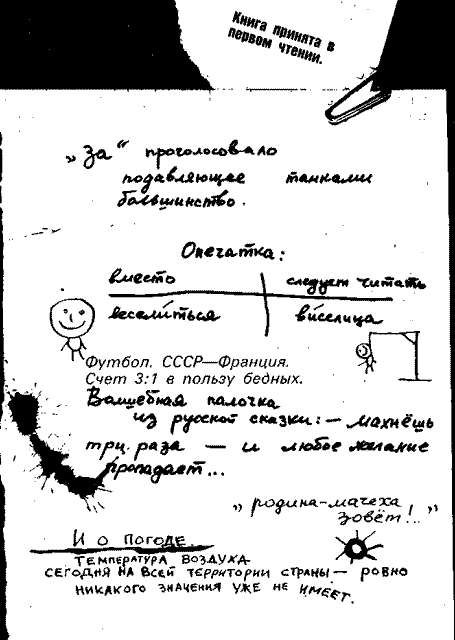 Книга принята в
первом чтении.
„За“ проголосовало
подавляющее танками
большинство.
Опечатка:
вместо следует читать
весели́ться ви́селица
Футбол. СССР—Франция.
Счет 3:1 в пользу бедных.
Волшебная палочка
из русской сказки: — махнёшь
три раза — и любое желание
пропадает...
„родина-мачеха
зовёт!.."
И о погоде.
ТЕМПЕРАТУРА ВОЗДУХА
СЕГОДНЯ НА ВСЕЙ ТЕРРИТОРИИ СТРАНЫ — РОВНО
НИКАКОГО ЗНАЧЕНИЯ УЖЕ НЕ ИМЕЕТ.